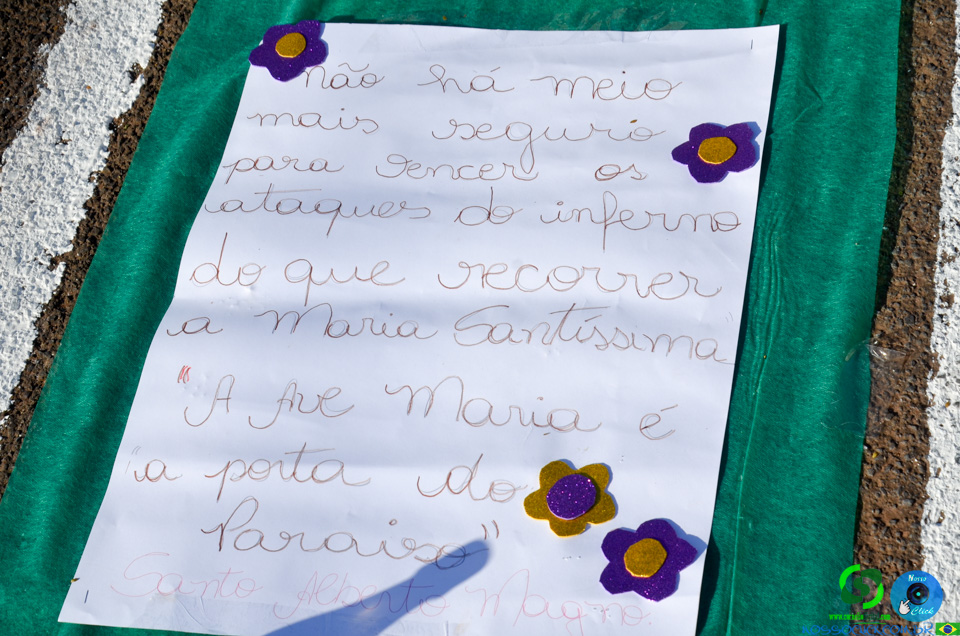 não há meio
mais seguro
para vencer os
ataques do inferno
do que recorrer
a Maria Santíssima
"A Ave Maria é
a porta do
Paraiso"
Santo Alberto Magno.
Nosso
Click